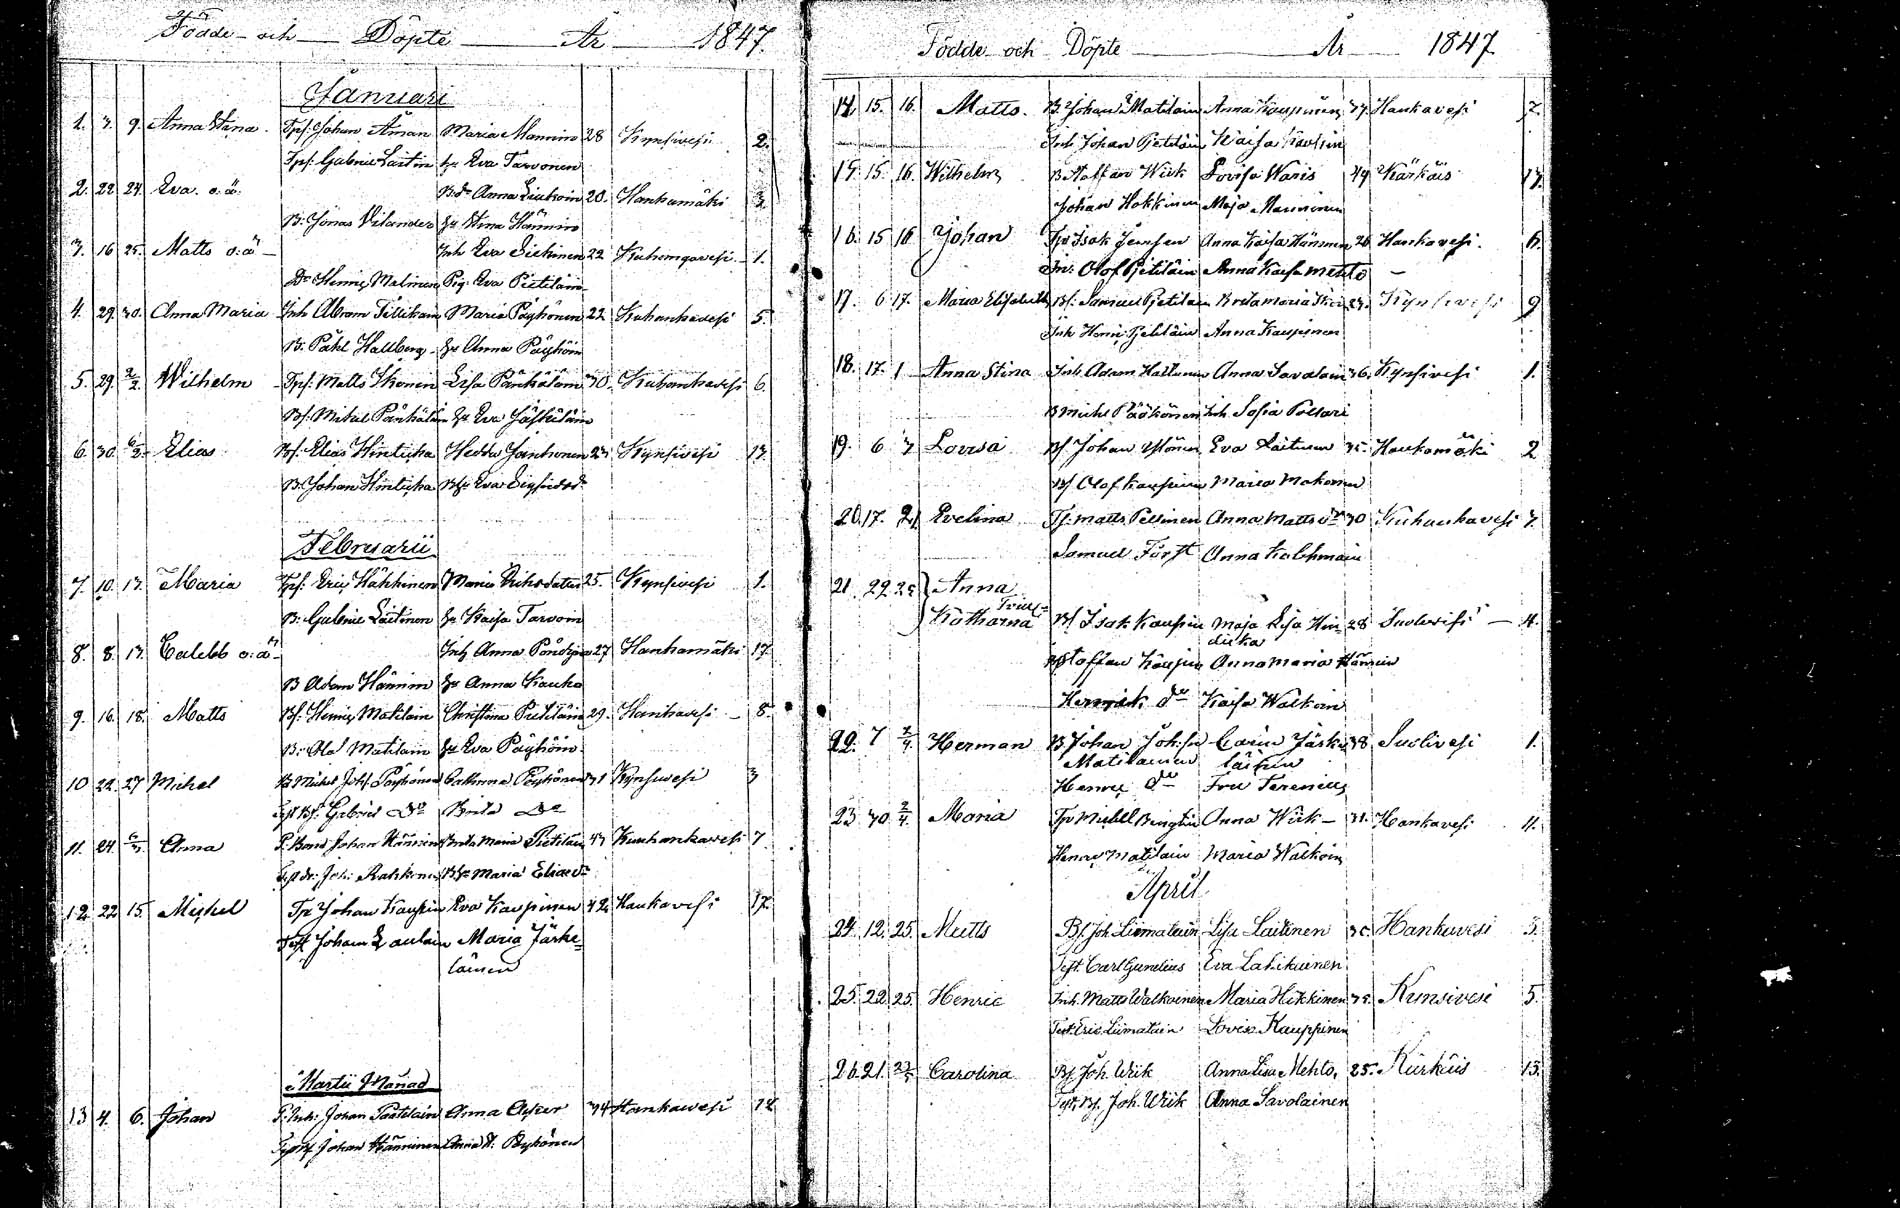 Födde och Döpte År 1847
Januari
1. 3. 9. Anna Stina. Tpf: Johan Åman Maria Mannin 28 Kynsivesi 2.
Tpf: Gabriel Laitin Hu Eva Tarvonen
2. 22 24. Eva. o.ä. B.dr Anna 20. Hankamäki 3
B: Jonas Vilander Hu Stina Hännin
3. 16 25. Matts o:ä Inh Eva 22 Kuhangavesi 1.
Dr Henric Malinen Pig. Eva Pietiläin
4. 29. 30. Anna Maria Inh Abram Maria Pöyhönen 22 Kuhankavesi 5.
B. Påhl Hallberg Hu Anna Pöyhöin
5. 29. 2/2. Wilhelm Tpf: Matts Ikonen Lisa Pänkäläin 30. Kuhankavesi 6.
Bf: Mikel Pänkäläin Hu Eva Jäskeläin
6. 30. 6/2 Elias Bf: Elias Hinticka Hedda Janhonen 23 Kynsivesi 13.
B. Johan Hinticka Bhu Eva Sigfridsdr
Februarii
7. 10. 13. Maria Tpf: Eric Häkkinen Maria Eriksdatter 25. Kynsivesi 1.
B: Gabriel Laitinen Hu Kaisa Tarvoin
8. 8. 13. Caleb o:ä Inh Anna 27 Hankamäki 17
B Adam Hännin Hu Anna Kauko
9. 16. 18. Matts Bf: Henric Matilain Christina Pietiläin 29. Hankavesi 8.
B: Olof Matilain Hu Eva Pöyhöin
10 22. 27 Michel B Mickel Johs Pöyhönen Cathrina Pöyhönen 31 Kynsivesi 3
Test Bf: Gabriel Do Brita Do
11. 24. 6/3. Anna T. Bond Johan Hännin Brita Maria Pietiläin 43 Kuuhankavesi 7
Test dr: Joh: Rahkonen Bhu Maria Eliaedr
12 22 15. Michel Tp Johan Kaupin Eva Kaupinen 42 Hankavesi 17.
Test Johan Laulain Maria Jäske=
läinen
Martii Månad
13 4. 6. Johan T: Inh: Johan Pietiläin Anna Asker 34 Hankavesi 12
Test Bf Johan Hänninen Anna St: Pöyhönen
Födde och Döpte År 1847
14. 15. 16. Matts. B. Johan Matilain Anna Kaupinen 37. Hankavesi 7.
Inh Johan Pietiläin Kaisa
15. 15. 16. Wilhelm B Staffan Wiik Lovisa Waris 49 Kärkäis 17.
Johan Hokkinen Maja Manninen
16. 15 16 Johan Tp Isak Jensen Anna Kaisa Hänninen 26 Hankavesi. 6.
Inh: Olof Pietiläin Anna Kaisa Mehto
17. 6 17. Maria Elisabeth Bf: Samuel Pietiläin Brita Maria 23. Kynsivesi 9
Inh Henric Pietiläin Anna Kaupinen
18. 17. 1 Anna Stina Inh. Adam Hattunen Anna Savolain 36. Kynsivesi 1.
B Michl Pöökönen Inh. Sofia Pölläri
19. 6 7 Lovisa Bf Johan Eva Laitinen 35. Hankamäki 2
Bf Olof Kaupinen Maria Makonen
20. 17. 21 Evelina Tf: Matts Pellinen Anna Mattsdr 30 Kuhankavesi 7.
Samuel Först Anna Kalehmain
21. 22 25 Anna
Katharina Bf Isak Kaupin Maja Lisa Hin= 28 Suolivesi 4.
dicka
Bf Staffan Kaupin Anna Maria Hännin
Henrick do Kaisa Walkoin
22. 7 2/4. Herman B Johan Joh:sn Carin Jäske 38 Suolivesi 1.
Matilainen läinen
Henric do Fru Ferenius
23 30 2/4. Maria Tp Michell Anna Wiik 31. Hankavesi 11.
Henric Matilain Maria Walkoin
April
24. 12. 25. Matts Bf. Joh Liimatain Lisa Laitinen 35. Hankavesi 3.
Test. Carl Gunelius Eva Lahikainen
25. 22. 25. Henric Inh. Matts Walkoinen Maria Hokkinen 35. Kunsivesi 5.
Test. Eric Liimatain Lovisa Kauppinen
26. 21. 23/5 Carolina Bf. Joh. Wiik Anna Lisa Mehto, 25. Kürkäis 13.
Test. Bf. Joh. Wiik Anna Savolainen